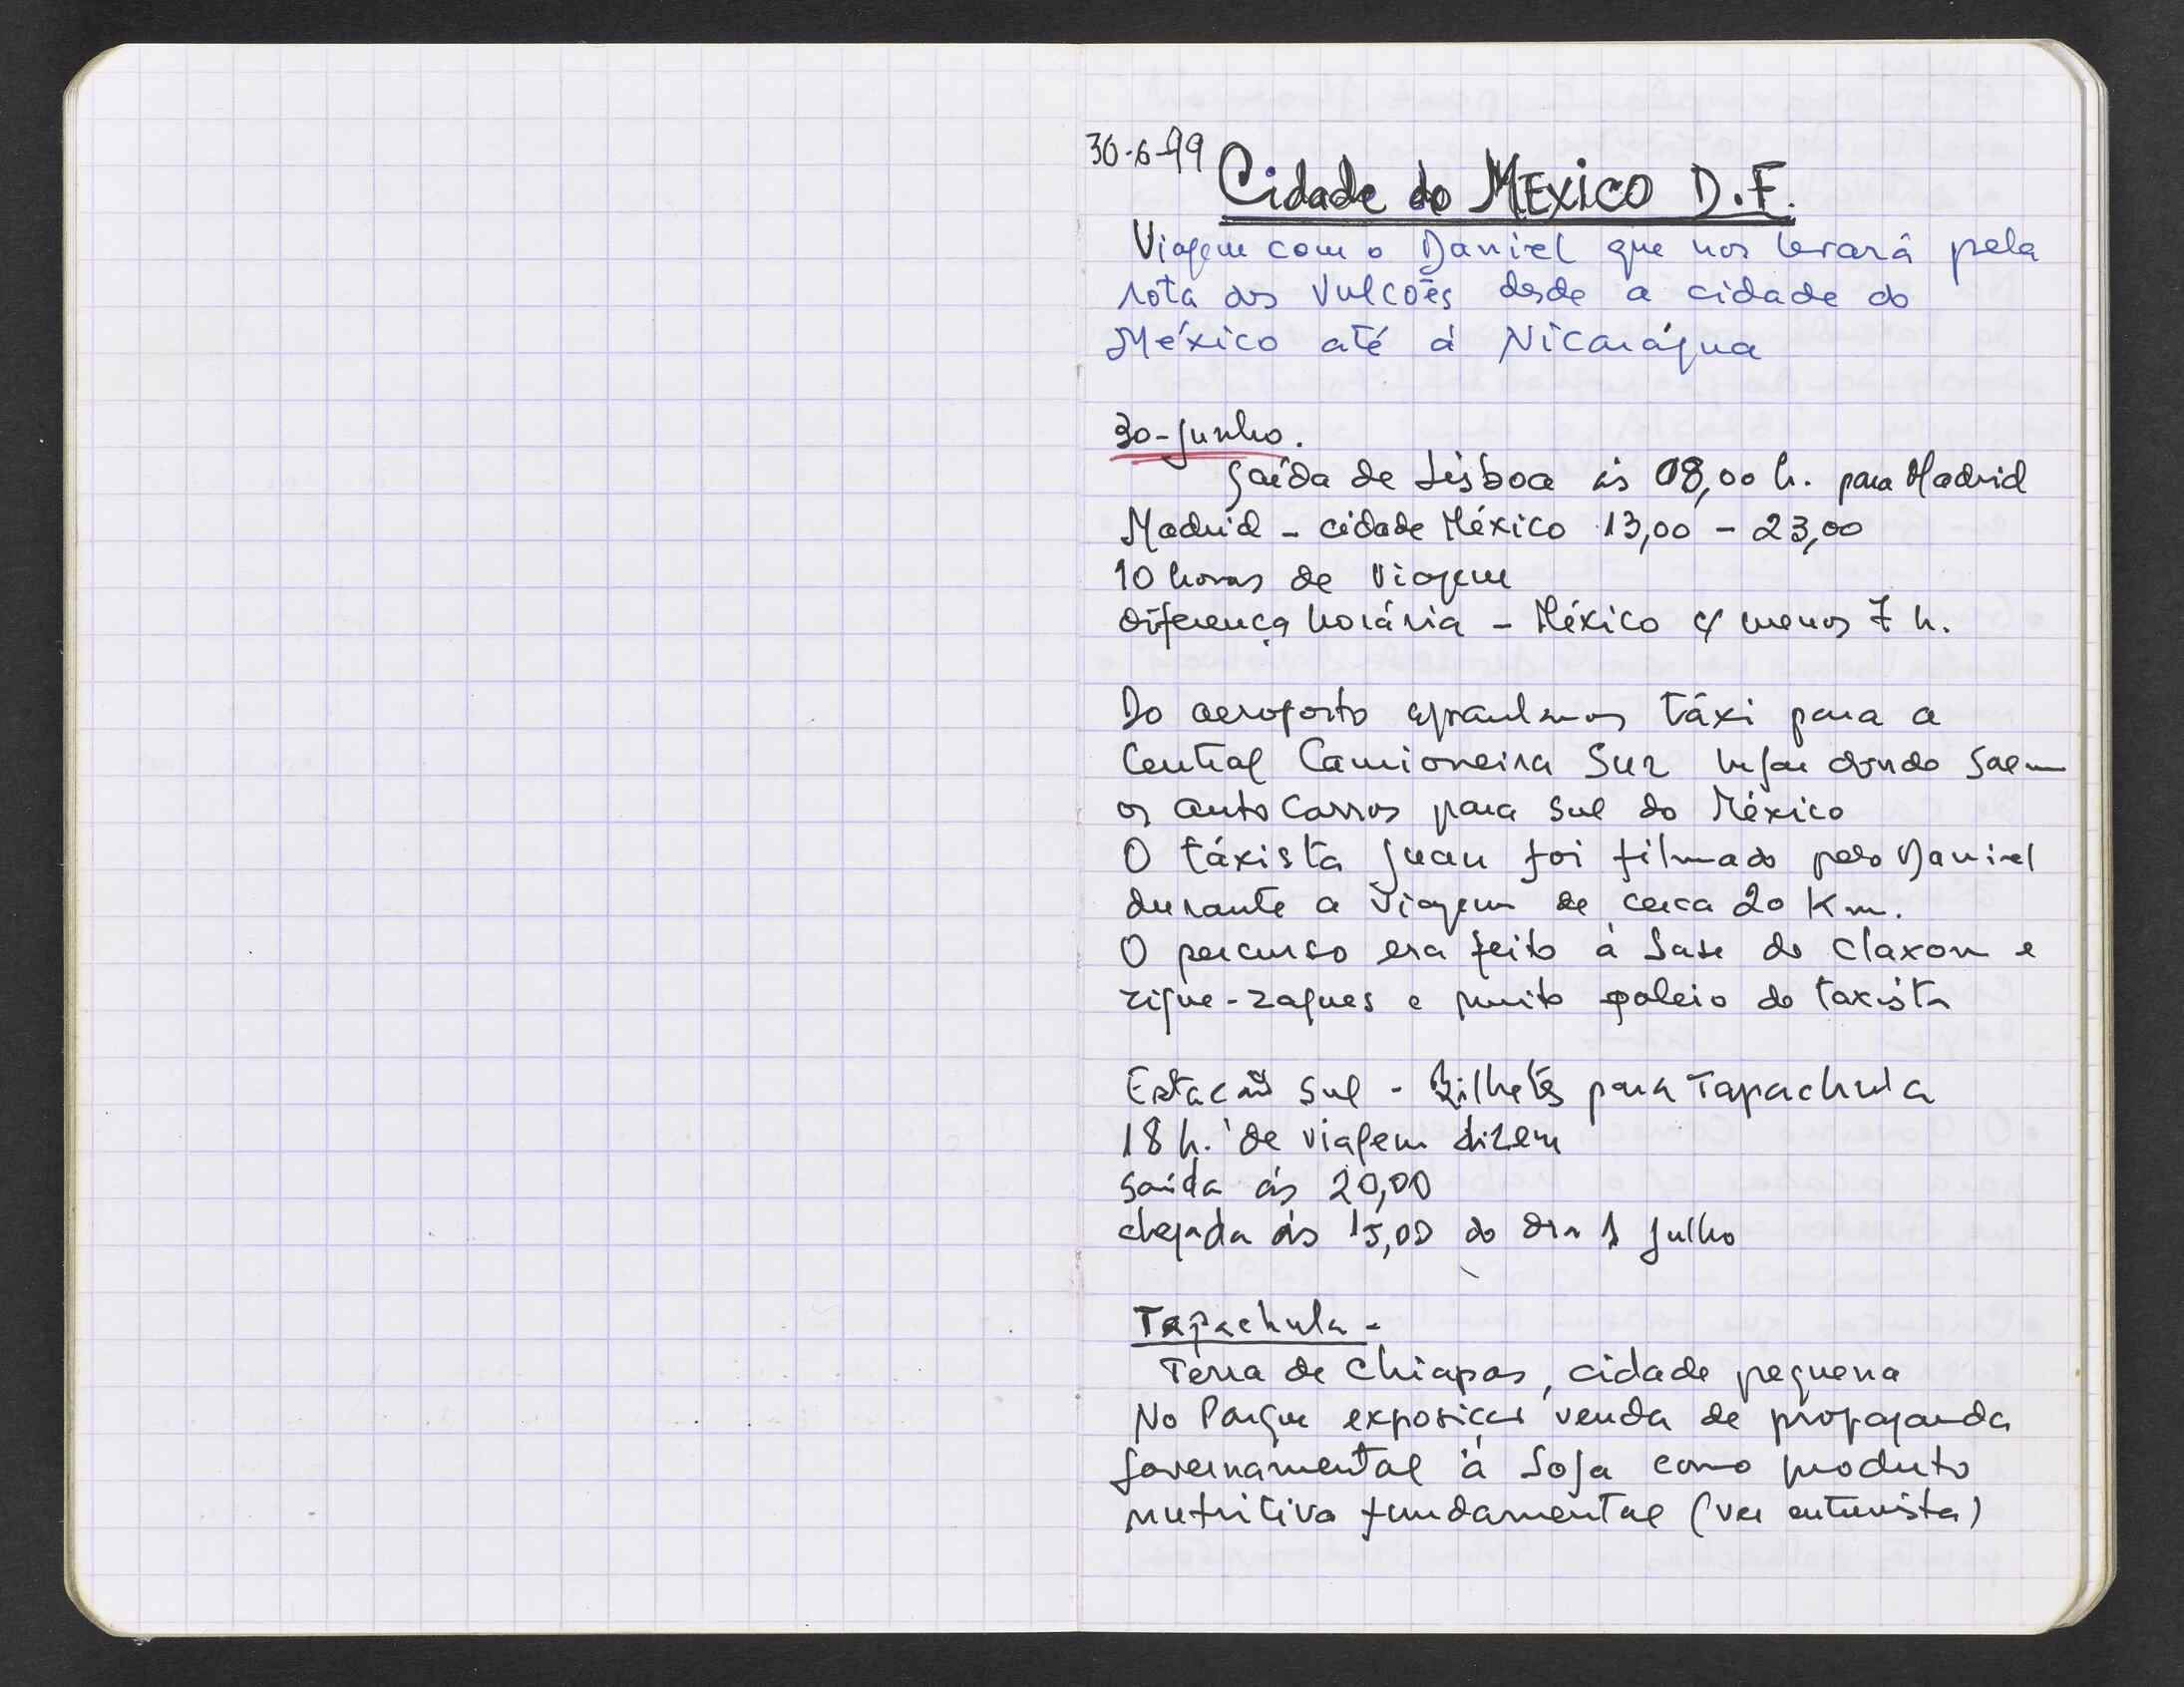 30-6-99
Cidade do MEXICO D.F.
Viagem com o Daniel que nos levará pela
rota dos Vulcões desde a cidade do
México até á Nicarágua
30-Junho.
Saída de Lisboa ás 08,00 h. para Madrid
Madrid - cidade México 13,00 - 23,00
10 horas de viagem
diferença horária - México c/ menos 7 h.
Do aeroporto apanhamos táxi para a
Central Camioneira Sur lugar donde saem
os autocarros para sul do México
O táxista Juan foi filmado pelo Daniel
durante a viagem de cerca 20 Km.
O percurso era feito á base do claxon e
zigue-zagues e muito paleio do taxista
Estacão Sul - Bilhetes para Tapachula
18 h. de viagem dizem
saída ás 20,00
chegada ás 15,00 do dia 1 Julho
Tapachula -
Terra de Chiapas, cidade pequena
No Parque exposição venda de propaganda
governamental á soja como produto
nutritivo fundamental (ver entrevista)